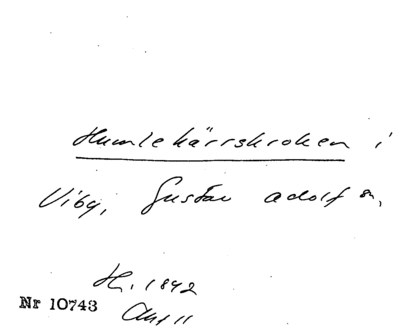 Humlekärrskroken i
Viby, Gustav Adolf sn,
H. 1842
Nr 10743
Akt 11